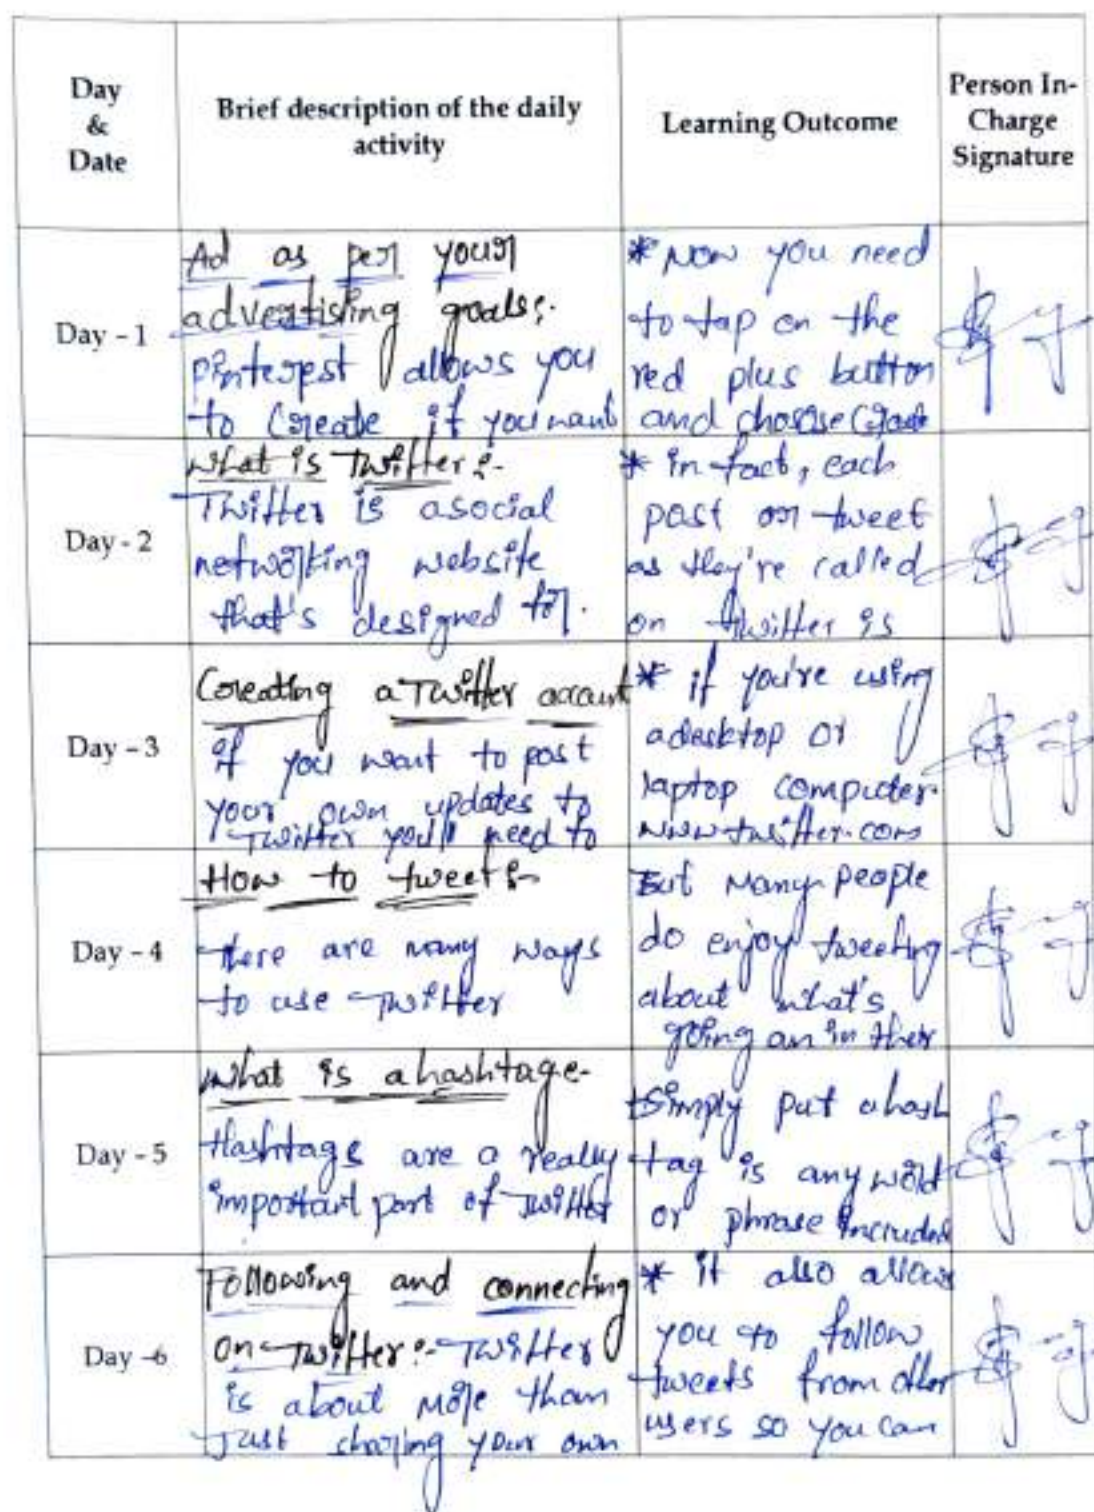 Day
&
Date
Brief description of the daily
activity
Learning Outcome
Person In-
Charge
Signature
Day - 1
Ad as per your
advertising goals:-
pinterest allows you
to Create if you want
* Now you need
to tap on the
red plus button
and choose Create
Day - 2
what is Twitter:-
Twitter is asocial
networking website
that's designed for.
* in fact, each
post or tweet
as they're called
on twitter is
Day - 3
Creating a Twitter account
if you want to post
your own updates to
Twitter you'll need to
* if you're using
adesktop or
laptop computer.
www.twitter.com
Day - 4
How to tweet:-
there are many ways
to use Twitter
But Many people
do enjoy tweeting
about what's
going on in their
Day - 5
what is a hashtag:-
Hashtags are a really
important part of Twitter
Simply put a hash
tag is any word
or phrase included
Day -6
Following and connecting
on Twitter:- Twitter
is about More than
Just sharing your own
* it also allows
you to follow
tweets from other
users so you can